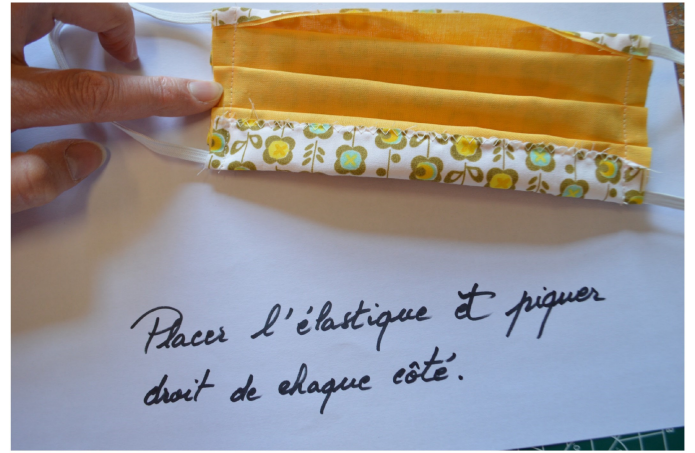 Placer l'élastique et piquer
droit de chaque côté.